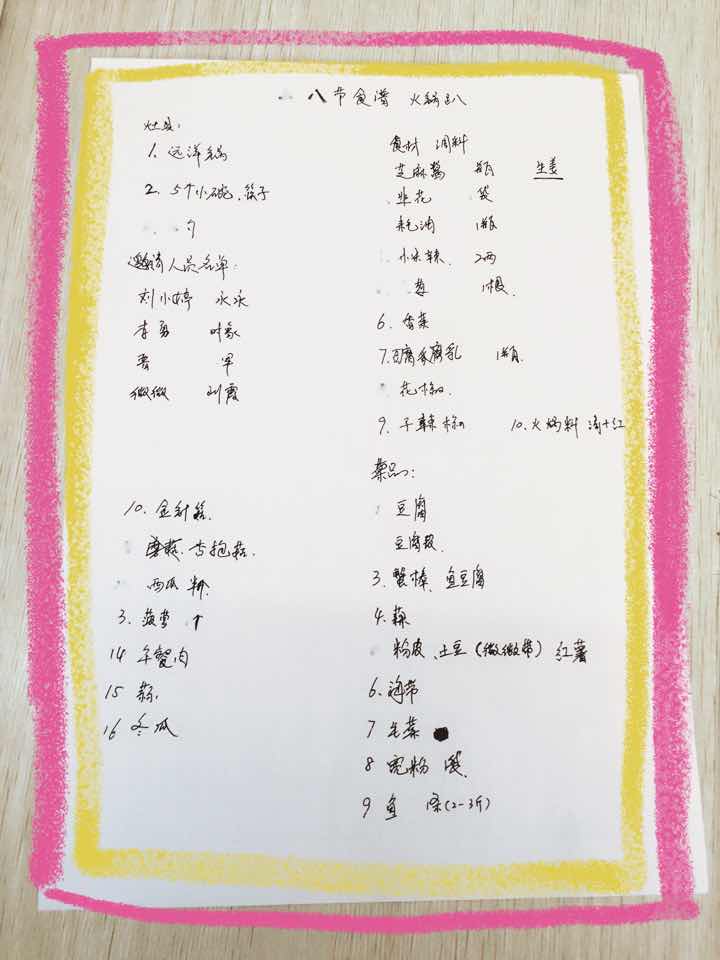 八节食谱 火锅趴
灶具:
1. 远洋锅
2. 5个小碗、筷子
勺
邀请人员名单:
刘小婷 永永
李勇
军
微微 刘霞
食材 调料
芝麻酱 1瓶 生姜
韭花 1袋
耗油 1瓶
小米辣 2两
葱 1根
6. 香菜
7. 豆腐 腐乳 1瓶
花椒
9. 干辣椒 10. 火锅料 清+红
菜品:
豆腐
豆腐皮
3. 蟹棒、鱼豆腐
4. 蒜
粉皮、土豆(微微带) 红薯
6. 海带
7 生菜
8 宽粉 1袋
9 鱼 1条(2-3斤)
10. 金针菇
蘑菇、杏抱菇
西瓜
3. 菠萝 1个
14 午餐肉
15 蒜
16 冬瓜